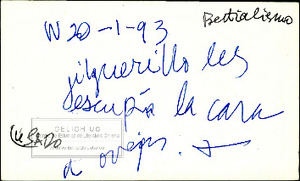 Bestialismo
W 20-1-93
jilguerillo les
escupía la cara
a ovejas.
SADO
CELICH UC